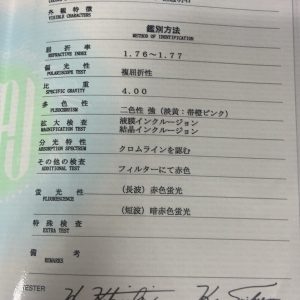 外観特徴
VISIBLE CHARACTERS
鑑別方法
METHOD OF IDENTIFICATION
屈折率
REFRACTIVE INDEX
1.76〜1.77
偏光性
POLARISCOPE TEST
複屈折性
比重
SPECIFIC GRAVITY
4.00
多色性
PLEOCHROISM
二色性 強(淡黄:帯橙ピンク)
拡大検査
MAGNIFICATION TEST
液膜インクルージョン
結晶インクルージョン
分光特性
ABSORPTION SPECTRUM
クロムラインを認む
その他の検査
ADDITIONAL TEST
フィルターにて赤色
蛍光性
FLUORESCENCE
(長波)赤色蛍光
(短波)暗赤色蛍光
特殊検査
EXTRA TEST
備考
REMARKS
TESTER